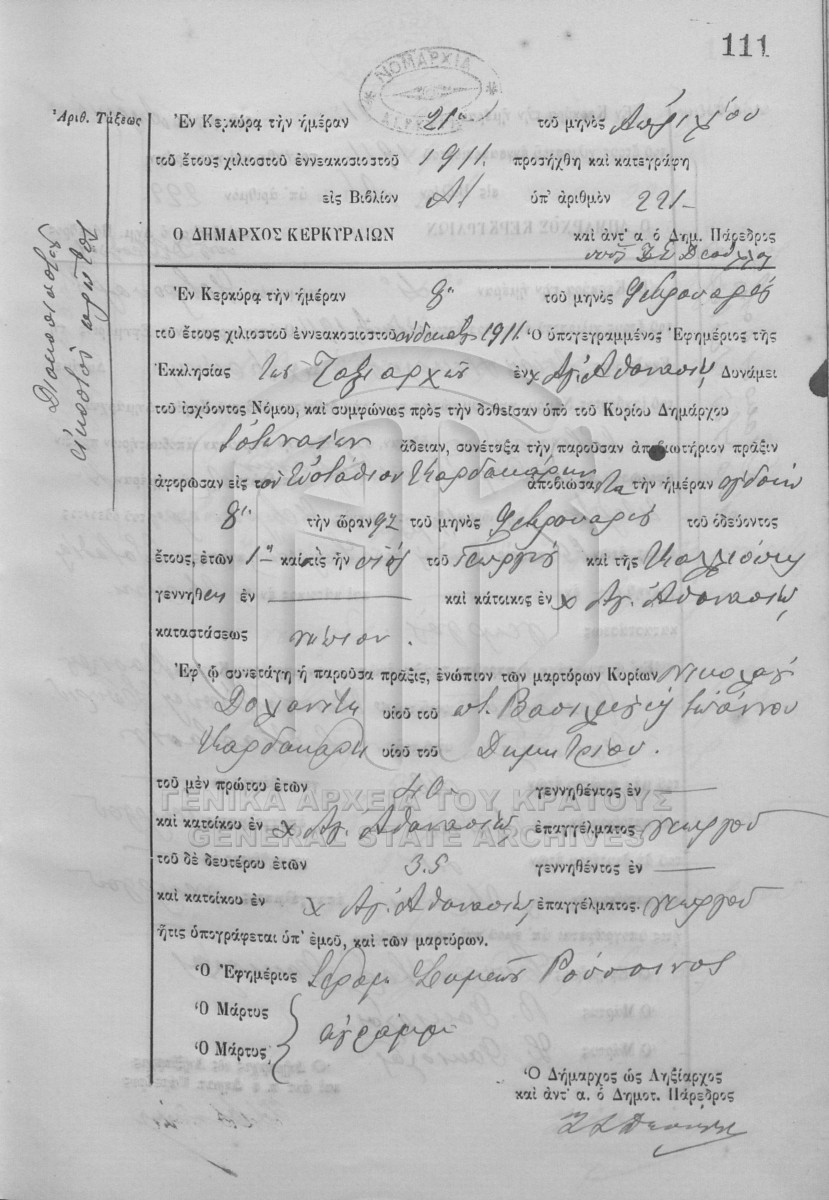 111
ΝΟΜΑΡΧΙΑ
Ἀριθ. Τάξεως
Διακοσιοστὸν
εἰκοστὸν πρῶτον
Ἐν Κερκύρᾳ τὴν ἡμέραν 21ην τοῦ μηνὸς Ἀπριλίου
τοῦ ἔτους χιλιοστοῦ ἐννεακοσιοστοῦ 1911 προσήχθη καὶ κατεγράφη
εἰς Βιβλίον Α/ ὑπ' ἀριθμὸν 221
Ο ΔΗΜΑΡΧΟΣ ΚΕΡΚΥΡΑΙΩΝ καὶ ἀντ' α. ὁ Δημ. Πάρεδρος
Ἐν Κερκύρᾳ τὴν ἡμέραν 8ην τοῦ μηνὸς Φεβρουαρίου
τοῦ ἔτους χιλιοστοῦ ἐννεακοσιοστοῦ ἑνδεκάτου 1911. Ὁ ὑπογεγραμμένος Ἐφημέριος τῆς
Ἐκκλησίας τῶν Ταξιαρχῶν ἐν χ Ἁγ. Ἀθανασίῳ, Δυνάμει
τοῦ ἰσχύοντος Νόμου, καὶ συμφώνως πρὸς τὴν δοθεῖσαν ὑπὸ τοῦ Κυρίου Δημάρχου
ἄδειαν, συνέταξα τὴν παροῦσαν ἀποβιωτήριον πράξιν
ἀφορῶσαν εἰς τὸν Εὐστάθιον Καρδακάρην ἀποβιώσαντα τὴν ἡμέραν ὀγδόην
8ην τὴν ὥραν 9 π.μ. τοῦ μηνὸς Φεβρουαρίου τοῦ ὁδεύοντος
ἔτους, ἐτῶν 1 καὶ τὶς ἦν υἱὸς τοῦ Γεωργίου καὶ τῆς Καλλιόπης
γεννηθεὶς ἐν — καὶ κάτοικος ἐν χ Ἁγ. Ἀθανασίῳ,
καταστάσεως νήπιον.
Ἐφ' ᾧ συνετάγη ἡ παροῦσα πράξις, ἐνώπιον τῶν μαρτύρων Κυρίων Νικολάου
Δολιανίτη υἱοῦ τοῦ ποτ. Βασιλείου, Ἰωάννου
Καρδακάρη υἱοῦ τοῦ Δημητρίου.
τοῦ μὲν πρώτου ἐτῶν 40 γεννηθέντος ἐν —
ΓΕΝΙΚΑ ΑΡΧΕΙΑ ΤΟΥ ΚΡΑΤΟΥΣ
καὶ κατοίκου ἐν χ Ἁγ. Ἀθανασίῳ ἐπαγγέλματος γεωργοῦ
GENERAL STATE ARCHIVES
τοῦ δὲ δευτέρου ἐτῶν 35 γεννηθέντος ἐν —
καὶ κατοίκου ἐν χ Ἁγ. Ἀθανασίῳ, ἐπαγγέλματος. γεωργοῦ
ἥτις ὑπογράφεται ὑπ' ἐμοῦ, καὶ τῶν μαρτύρων.
Ὁ Ἐφημέριος
Ὁ Μάρτυς
ἀγράμματοι
Ὁ Μάρτυς
Ὁ Δήμαρχος ὡς Ληξίαρχος
καὶ ἀντ' α. ὁ Δημοτ. Πάρεδρος